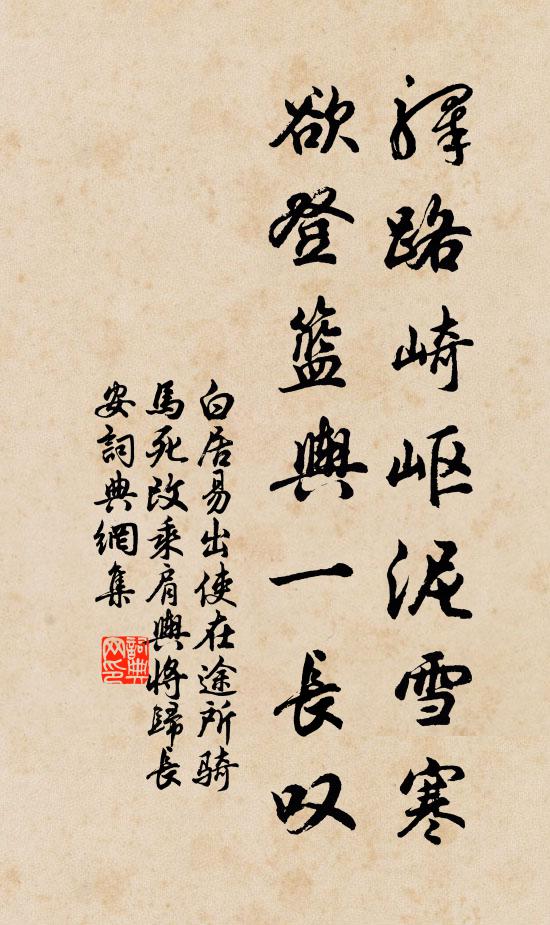 驛路崎岖泥雪寒
欲登籃輿一長叹
白居易出使在途所骑
馬死改乘肩輿將歸長
安詞典網集
詞典网印